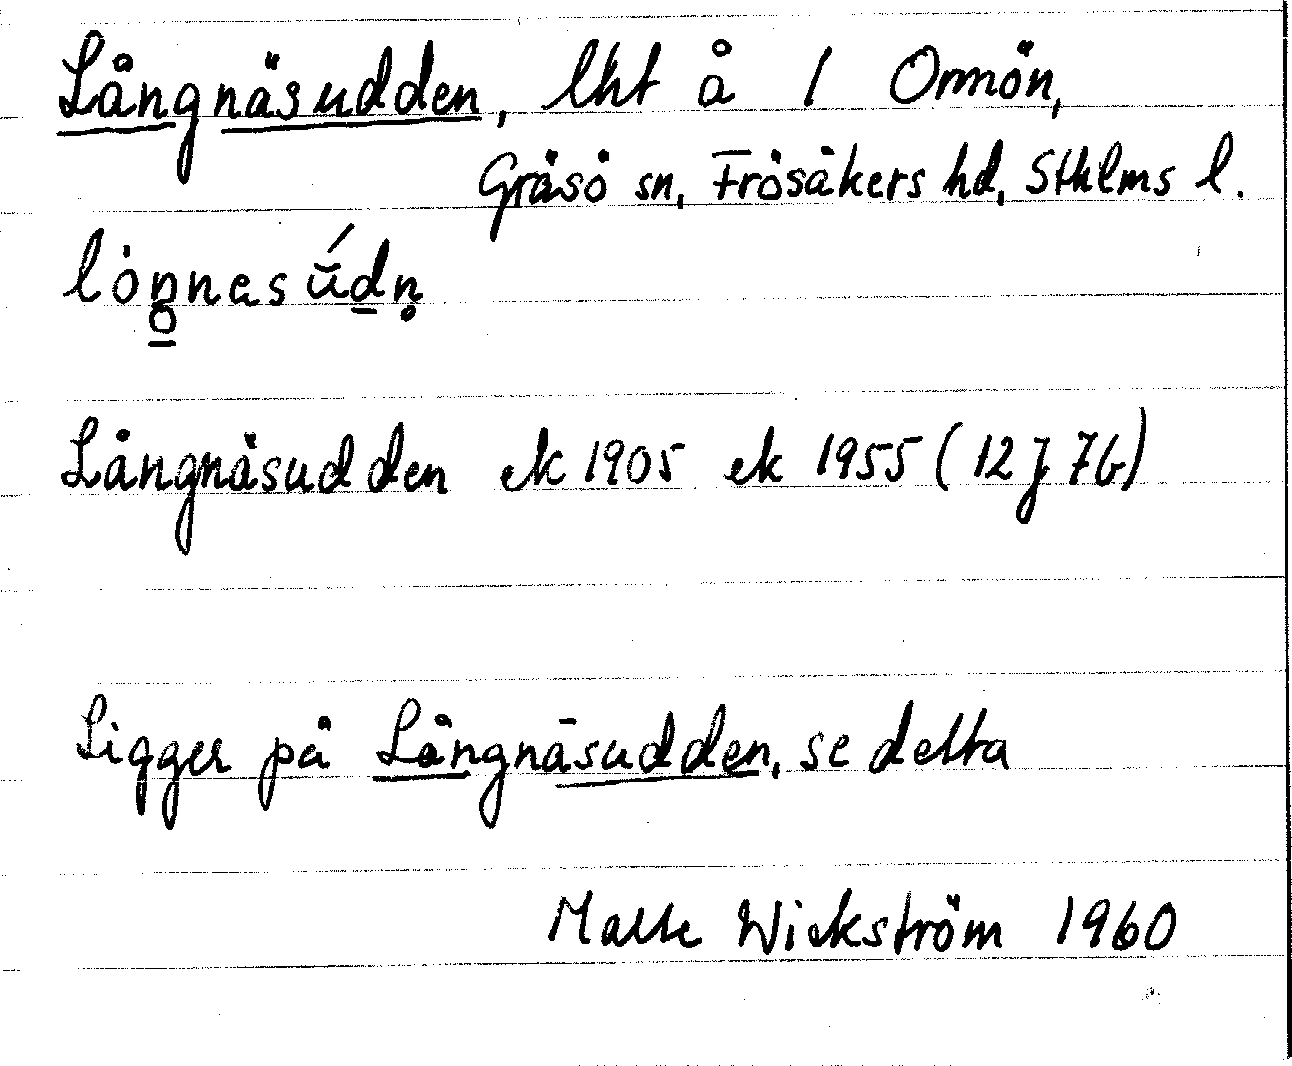 Långnäsudden, lht å / Ormön,
Gräsö sn, Frösåkers hd, Sthlms l.
Långnäsudden ek 1905 ek 1955 (12 J 7b)
Ligger på Långnäsudden, se detta
Wickström 1960